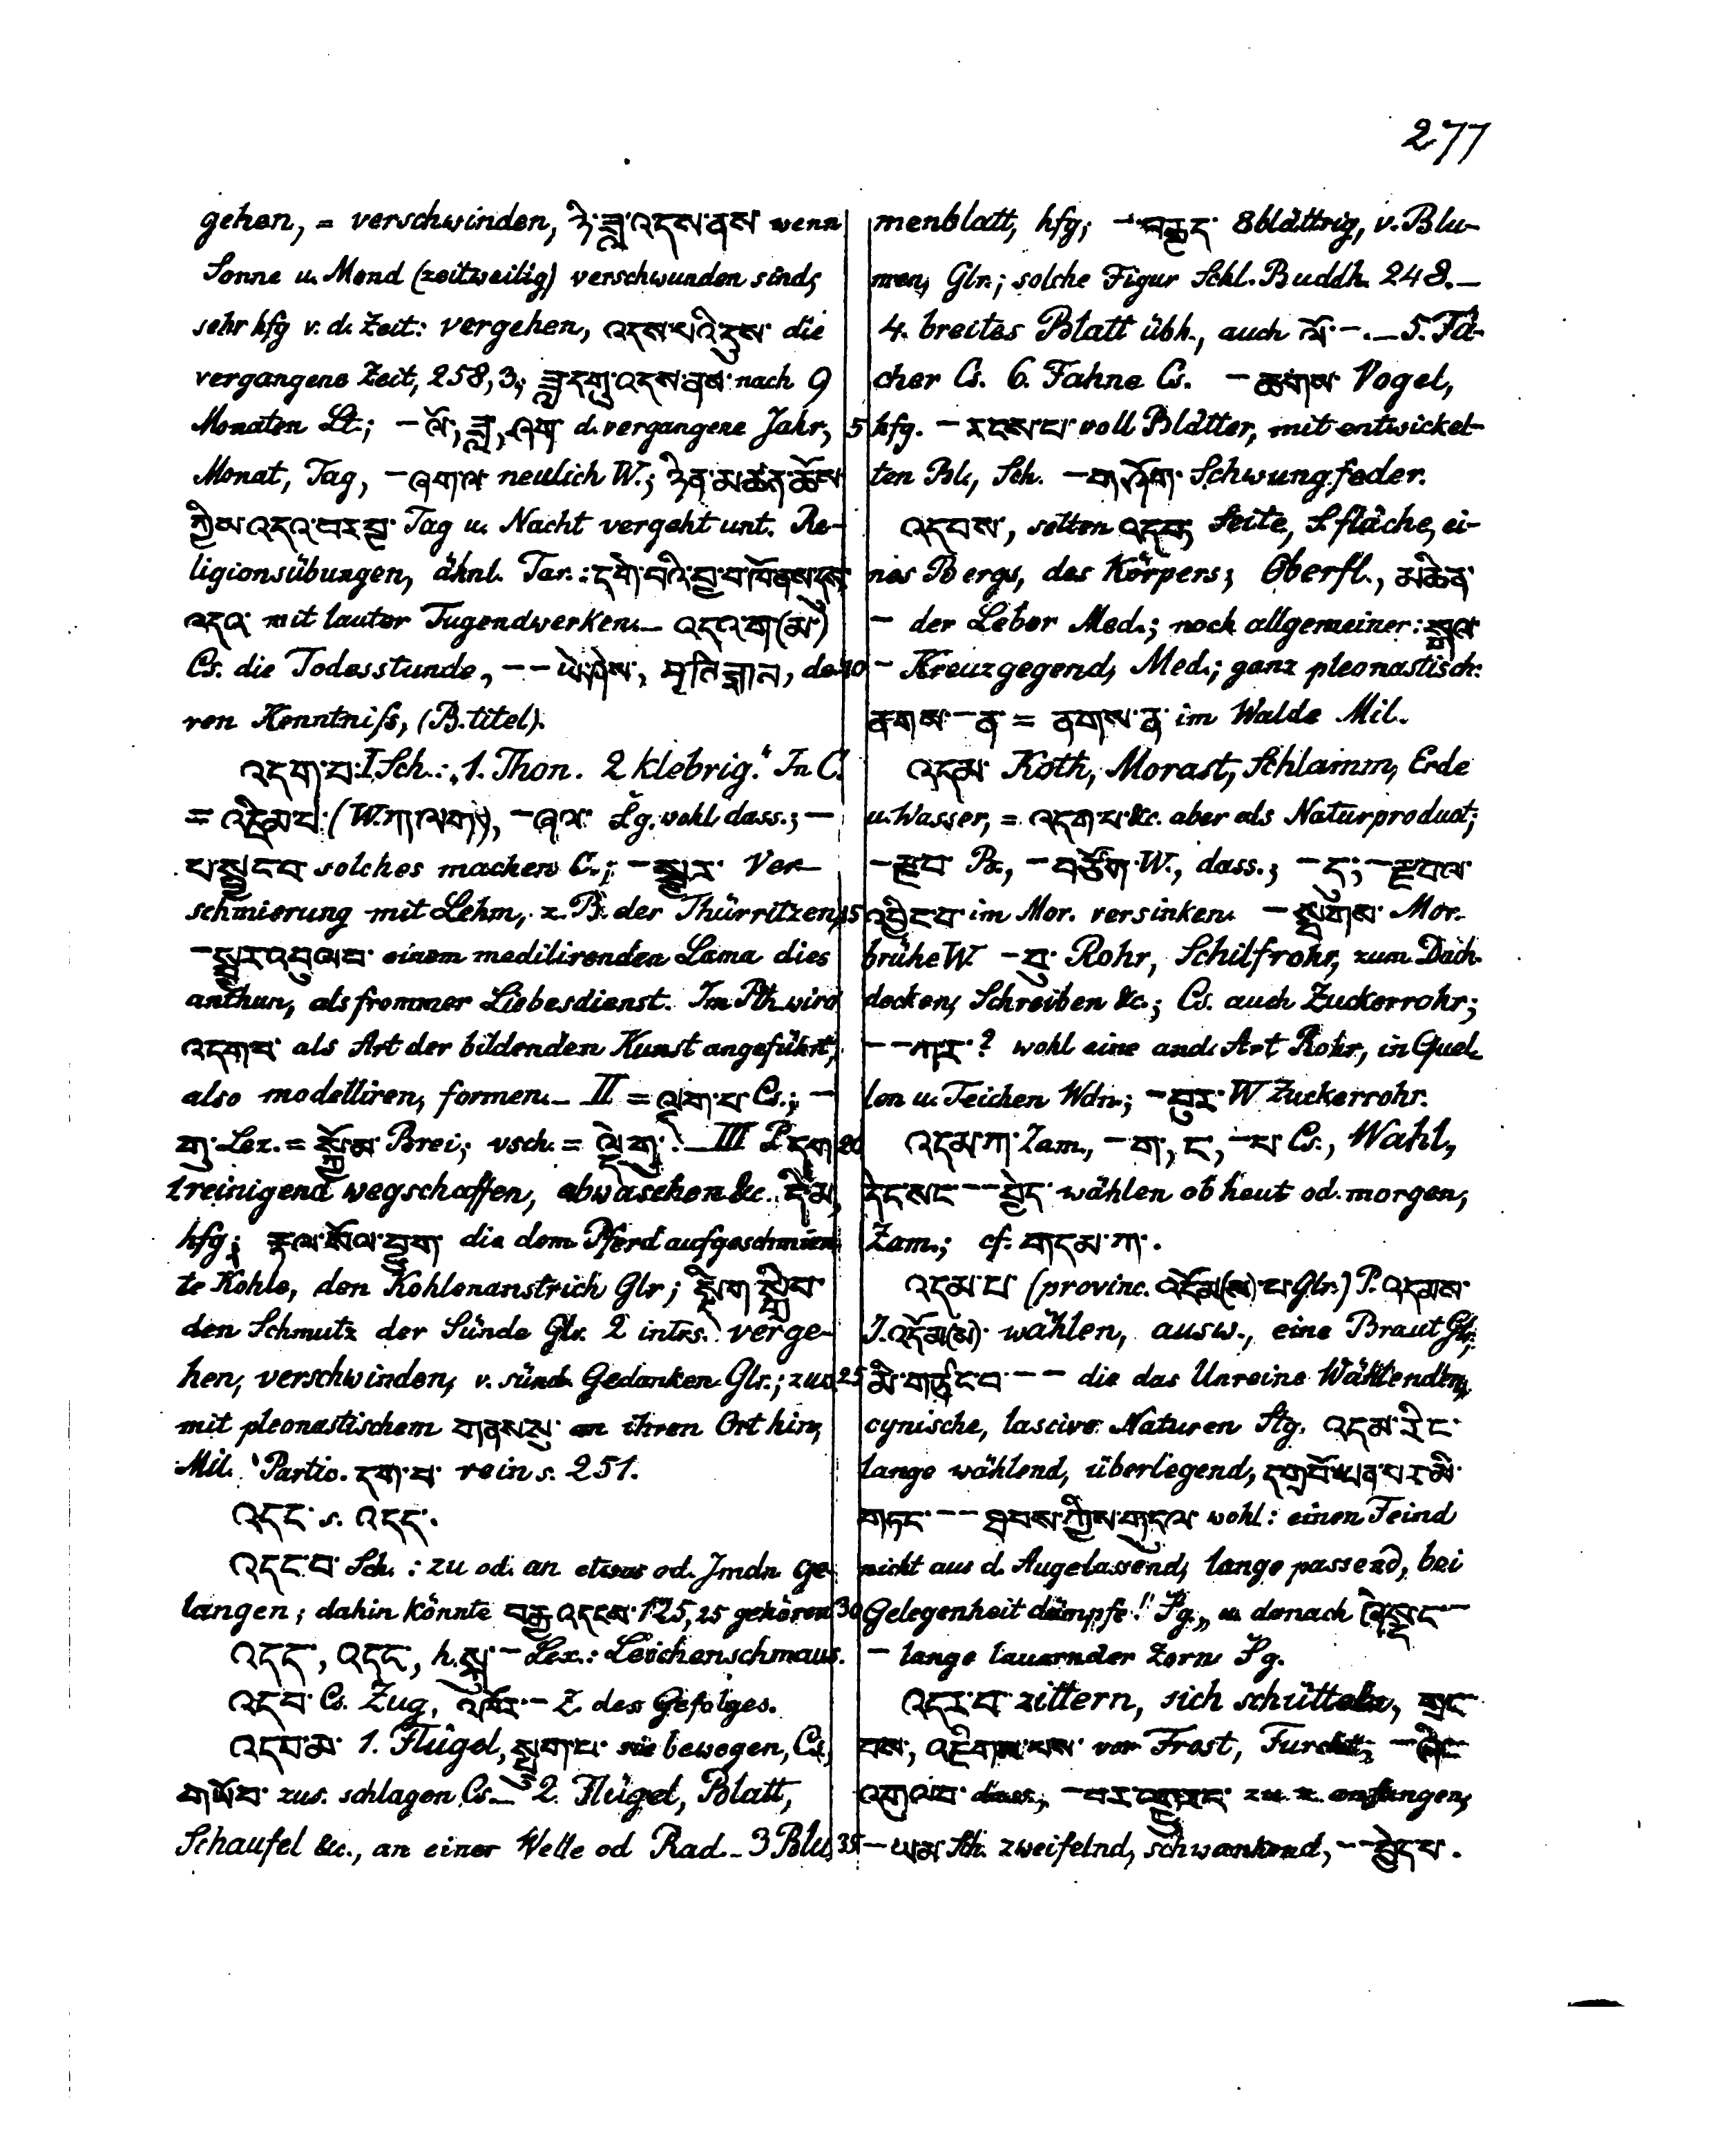 277
gehen, = verschwinden, ཉི་ཟླ་འདས་ནས wenn
Sonne u. Mond (zeitweilig) verschwunden sind;
sehr hfg v. d. Zeit: vergehen, འདས་པའི་དུས་ die
vergangene Zeit, 258,3; ཟླ་དགུ་འདས་ནས་ nach 9
Monaten Lt.; – ལོ, ཟླ, ཞག d. vergangene Jahr,
Monat, Tag, – ཞག་ལ་ neulich W.; ཉིན་མཚན་ཆོས་
ཀྱིས་འདའ་བར་བྱ་ Tag u. Nacht vergeht unt. Re-
ligionsübungen, ähnl. Tar.: དགེ་བའི་བྱ་བ་ཁོ་ནས་དུས་
འདའ་ mit lauter Tugendwerken. – འདའ་ག(མ་)
Cs. die Todesstunde, – – ཡེ་ཤེས་, de-
ren Kenntniß, (B.titel).
འདག་པ་ I Sch.: „1. Thon. 2 klebrig.“ In C.
= འཇིམ་པ་ (W. ཀ་ལག་), – ཞལ་ Lg. wohl dass.; –
solches machen C.; – སྦྱར་ Ver-
schmierung mit Lehm, z.B. der Thürritzen,
– སྦྱར་འབུལ་བ་ einem meditirenden Lama dies
anthun, als frommer Liebesdienst. Im Pth wird
འདག་པ་ als Art der bildenden Kunst angeführt,
also modelliren, formen. – II = ལྡག་པ་ Cs.; –
གུ་ Lex. = སྐྱོ་མ་ Brei; vsch. = ལྡེ་གུ་? – III P. དག
1 reinigend wegschaffen, abwaschen &c. དྲི་མ,
hfg; རྟལ་སོལ་བྱུག die dem Pferd aufgeschmier-
te Kohle, den Kohlenanstrich Glr; སྡིག་སྒྲིབ་
den Schmutz der Sünde Glr. 2 intrs. verge-
hen, verschwinden, v. sünd. Gedanken Glr.; zuw.
mit pleonastischem གནས་སུ་ an ihren Ort hin,
Mil. Partic. དག་པ་ rein s. 251.
འདང་ s. འདད་.
འདང་བ་ Sch.: zu od. an etwas od. Jmdn. ge-
langen; dahin könnte འདངས་ 125,25 gehören
འདད་, འདད་, h. – Lex.: Leichenschmaus.
འདབ་ Cs. Zug, འཁོར་ – Z. des Gefolges.
འདབ་མ་ 1. Flügel, སྐྱུག་པ་ sie bewegen, Cs.,
གཡོབ་ zus. schlagen Cs. – 2. Flügel, Blatt,
Schaufel &c., an einer Welle od Rad. – 3 Blu-
menblatt, hfg; – བརྒྱད་ 8blättrig, v. Blu-
men, Glr.; solche Figur Schl. Buddh. 248. –
4. breites Blatt übh., auch ལོ་ –. – 5. Fä-
cher Cs. 6. Fahne Cs. – ཆགས་ Vogel,
5 hfg. – རྒྱས་པ་ voll Blätter, mit entwickel-
ten Bl., Sch. – གཤོག་ Schwungfeder.
འདབས་, selten འདབ་, Seite, S.fläche, ei-
nes Bergs, des Körpers; Oberfl., མཆིན་
– der Leber Med.; noch allgemeiner:
10 – Kreuzgegend, Med.; ganz pleonastisch:
ནགས་ – ན་ = ནགས་ན་ im Walde Mil.
འདམ་ Koth, Morast, Schlamm, Erde
u. Wasser, = འདག་པ་ &c. aber als Naturproduct;
– རྫབ་ Pz., – W., dass.; – ད་; – རྫབ་ལ་
15 འབྱིང་བ་ im Mor. versinken. – Mor.
brühe W. – བུ་ Rohr, Schilfrohr, zum Dach-
decken, Schreiben &c.; Cs. auch Zuckerrohr;
– – ཀར་? wohl eine and. Art Rohr, in Quel-
len u. Teichen Wdn.; – བུར་ W Zuckerrohr.
20 འདམ་ཀ་ Zam., – ག་, ང་, – པ་ Cs., Wahl,
དེ་རིང་སང་ – – བྱེད་ wählen ob heut od. morgen,
Zam.; cf. གདམ་ཀ་.
འདམ་པ་ (provinc. འདོམ(ས)་པ་ Glr.) P. འདམས་
I. འདོམ(ས)་ wählen, ausw., eine Braut Glr.;
25 མི་གཙང་བ་ – – die das Unreine Wählenden,
cynische, lascive Naturen Stg. འདམ་རིང་
lange wählend, überlegend, དགྲ་བོ་ཡན་པར་མི་
གཏང་ – – ཐབས་ཀྱིས་གདུལ་ wohl: einen Feind
nicht aus d. Auge lassend, lange passend, bei
30 Gelegenheit dämpfe!! Pg., u. danach ཞེ་སྡང་ –
– lange lauernder Zorn Pg.
འདར་བ་ zittern, sich schütteln, གྲང་
བས་, འཇིགས་པས་ vor Frost, Furcht;
འགུལ་བ་ dass., – zu z. anfangen,
35 – ཡམ Sch. zweifelnd, schwankend, – – བྱེད་པ་.